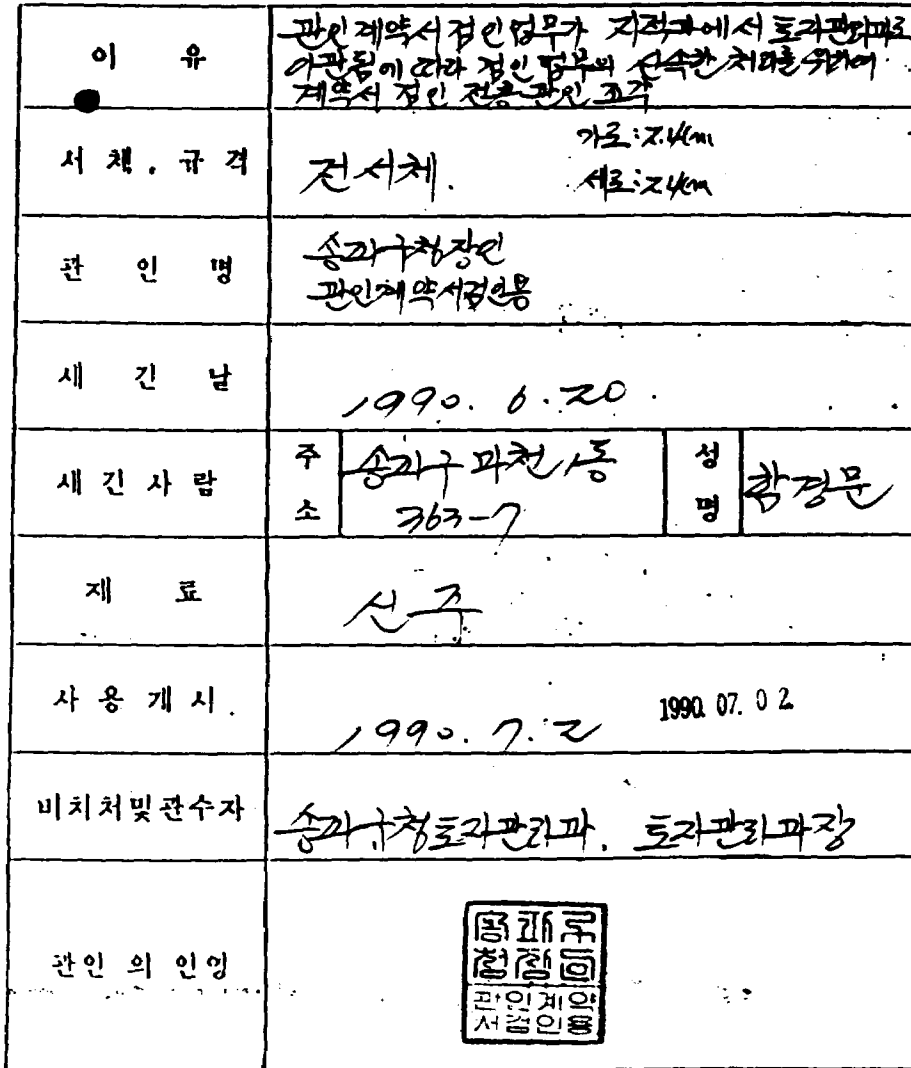 이 유
관인계약서검인업무가 지적과에서 토지관리과로
이관됨에 따라 검인업무의 신속한 처리를 위하여
계약서 검인 전용 관인 조각
서체. 규격
전서체.
가로:2.4cm
세로:2.4cm
관 인 명
송파구청장인
관인계약서검인용
새 긴 날
1990. 6. 20.
새 긴 사 람
주소
송파구 마천1동
363-7
성명
함경문
재 료
신주
사 용 개 시.
1990. 7. 2
1990. 07. 02
비치처및관수자
송파구청토지관리과. 토지관리과장
관인 의 인영
관인계약
서검인용